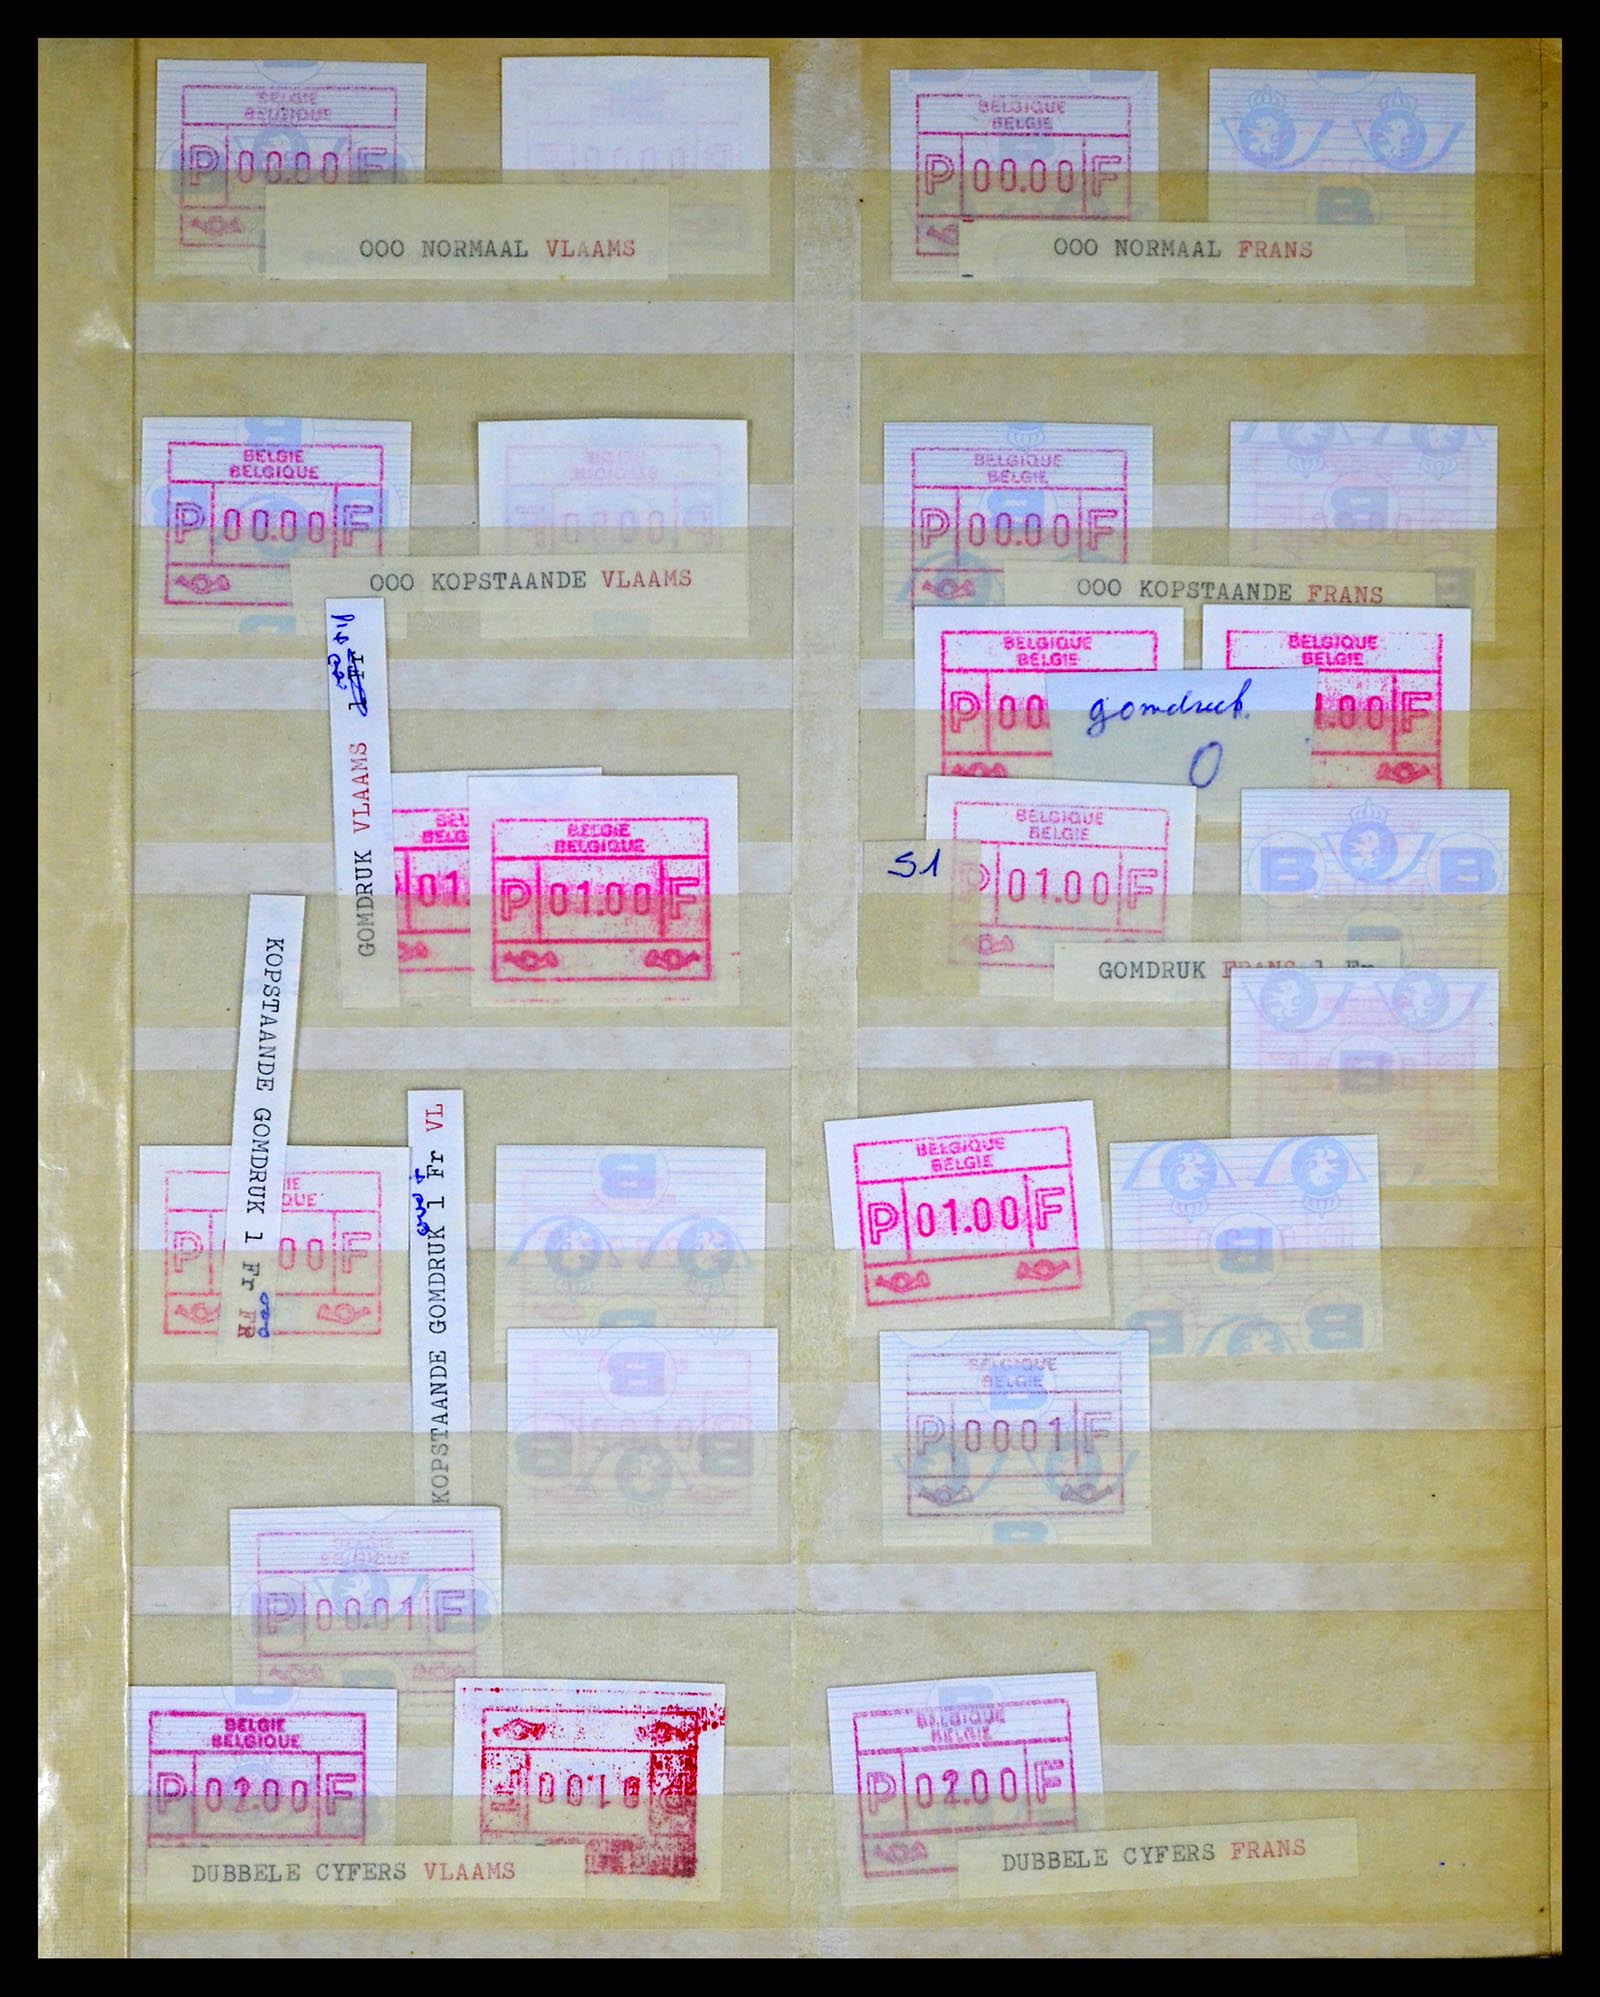 BELGIE
BELGIQUE
P 00.00 F
000 NORMAAL VLAAMS
BELGIQUE
BELGIE
P 00.00 F
B
000 NORMAAL FRANS
BELGIE
BELGIQUE
P 00.00 F
000 KOPSTAANDE VLAAMS
BELGIQUE
BELGIE
P 00.00 F
B
000 KOPSTAANDE FRANS
GOMDRUK VLAAMS
BELGIQUE
BELGIE
P 00
BELGIQUE
BELGIE
.00 F
gomdruk
0
01.
BELGIE
BELGIQUE
P 01.00 F
S1
BELGIQUE
BELGIE
P 01.00 F
B B
GOMDRUK FRANS 1 Fr
B
KOPSTAANDE GOMDRUK 1 Fr FR
000
P 00 F
KOPSTAANDE GOMDRUK 1 Fr VL
B
BELGIQUE
BELGIE
P 01.00 F
B
B B
B
B B
BELGIQUE
BELGIE
P 00.01 F
B
BELGIE
BELGIQUE
P 00.01 F
BELGIE
BELGIQUE
P 02.00 F
01.00
DUBBELE CYFERS VLAAMS
BELGIQUE
BELGIE
P 02.00 F
DUBBELE CYFERS FRANS